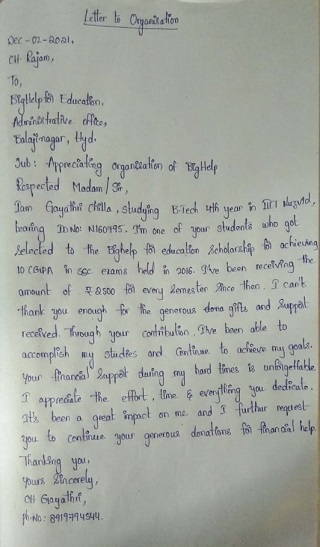 Letter to Organisation
Dec-02-2021,
CH Rajam,
To,
BigHelp for Education,
Administrative office,
Balaji nagar, Hyd.
Sub: Appreciating organisation of BigHelp
Respected Madam/Sir,
Iam Gayathri Chilla, studying B.Tech 4th year in IIIT Nuzvid,
bearing ID NO: N160795. I'm one of your students who got
selected to the Bighelp for education Scholarship for achieving
10 CGPA in SSC exams held in 2016. I've been receiving the
amount of ₹2500 for every Semester Since then. I can't
thank you enough for the generous gifts and Support
received. Through your contribution. I've been able to
accomplish my studies and Continue to achieve my goals.
Your financial Support during my hard times is unforgettable.
I appreciate the effort, time & everything you dedicate.
It's been a great impact on me. and I further request
you to continue your generous donations for financial help
Thanking you,
Yours Sincerely,
CH Gayathri,
Ph.No: 8919794544.